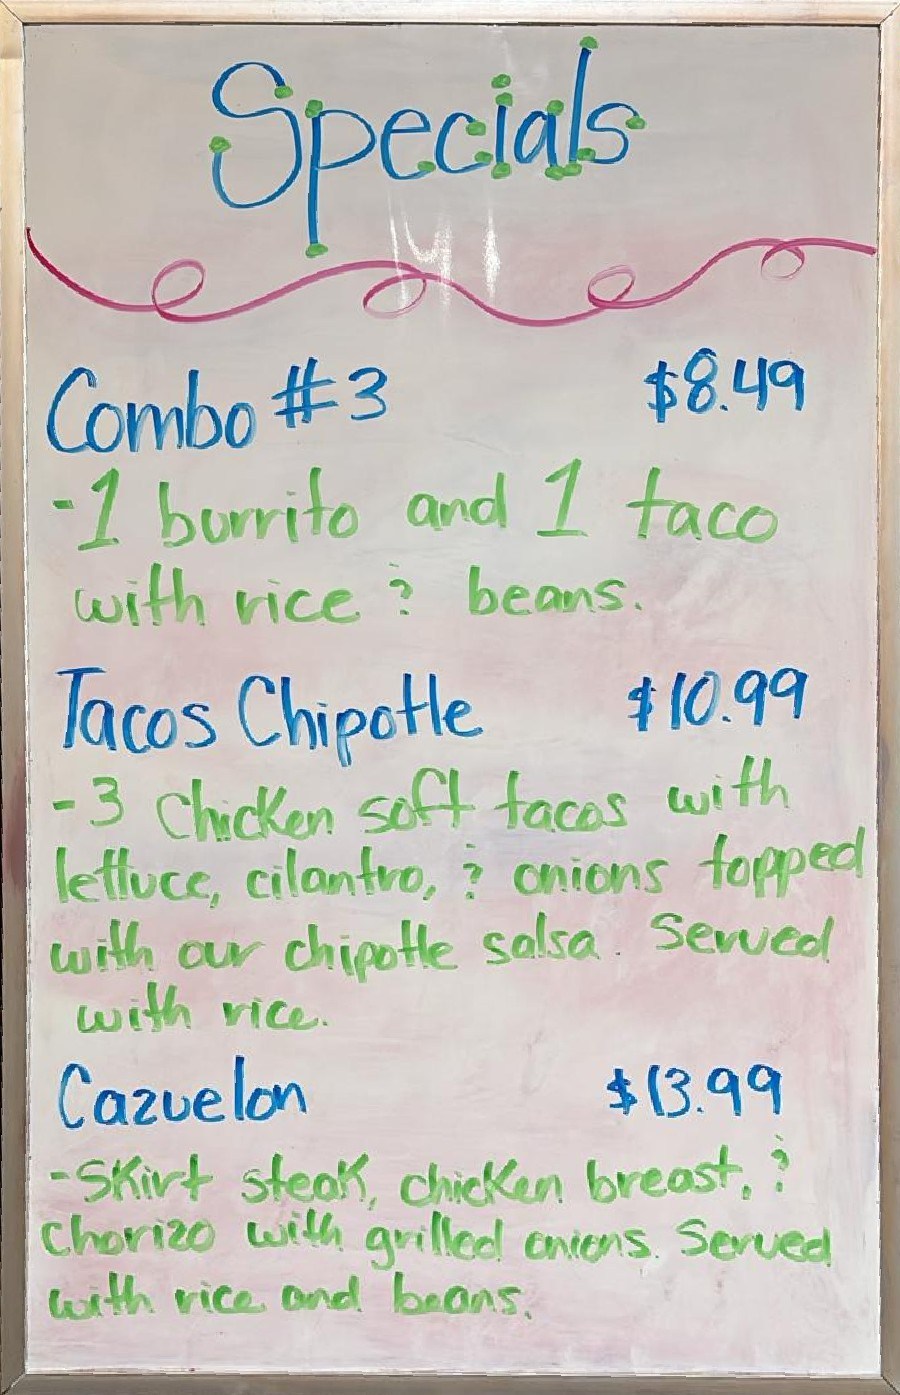 Specials
Combo #3 $8.49
-1 burrito and 1 taco
with rice & beans.
Tacos Chipotle $10.99
-3 Chicken soft tacos with
lettuce, cilantro, & onions topped
with our chipotle salsa. Served
with rice.
Cazuelon $13.99
-Skirt steak, chicken breast, &
Chorizo with grilled onions. Served
with rice and beans.